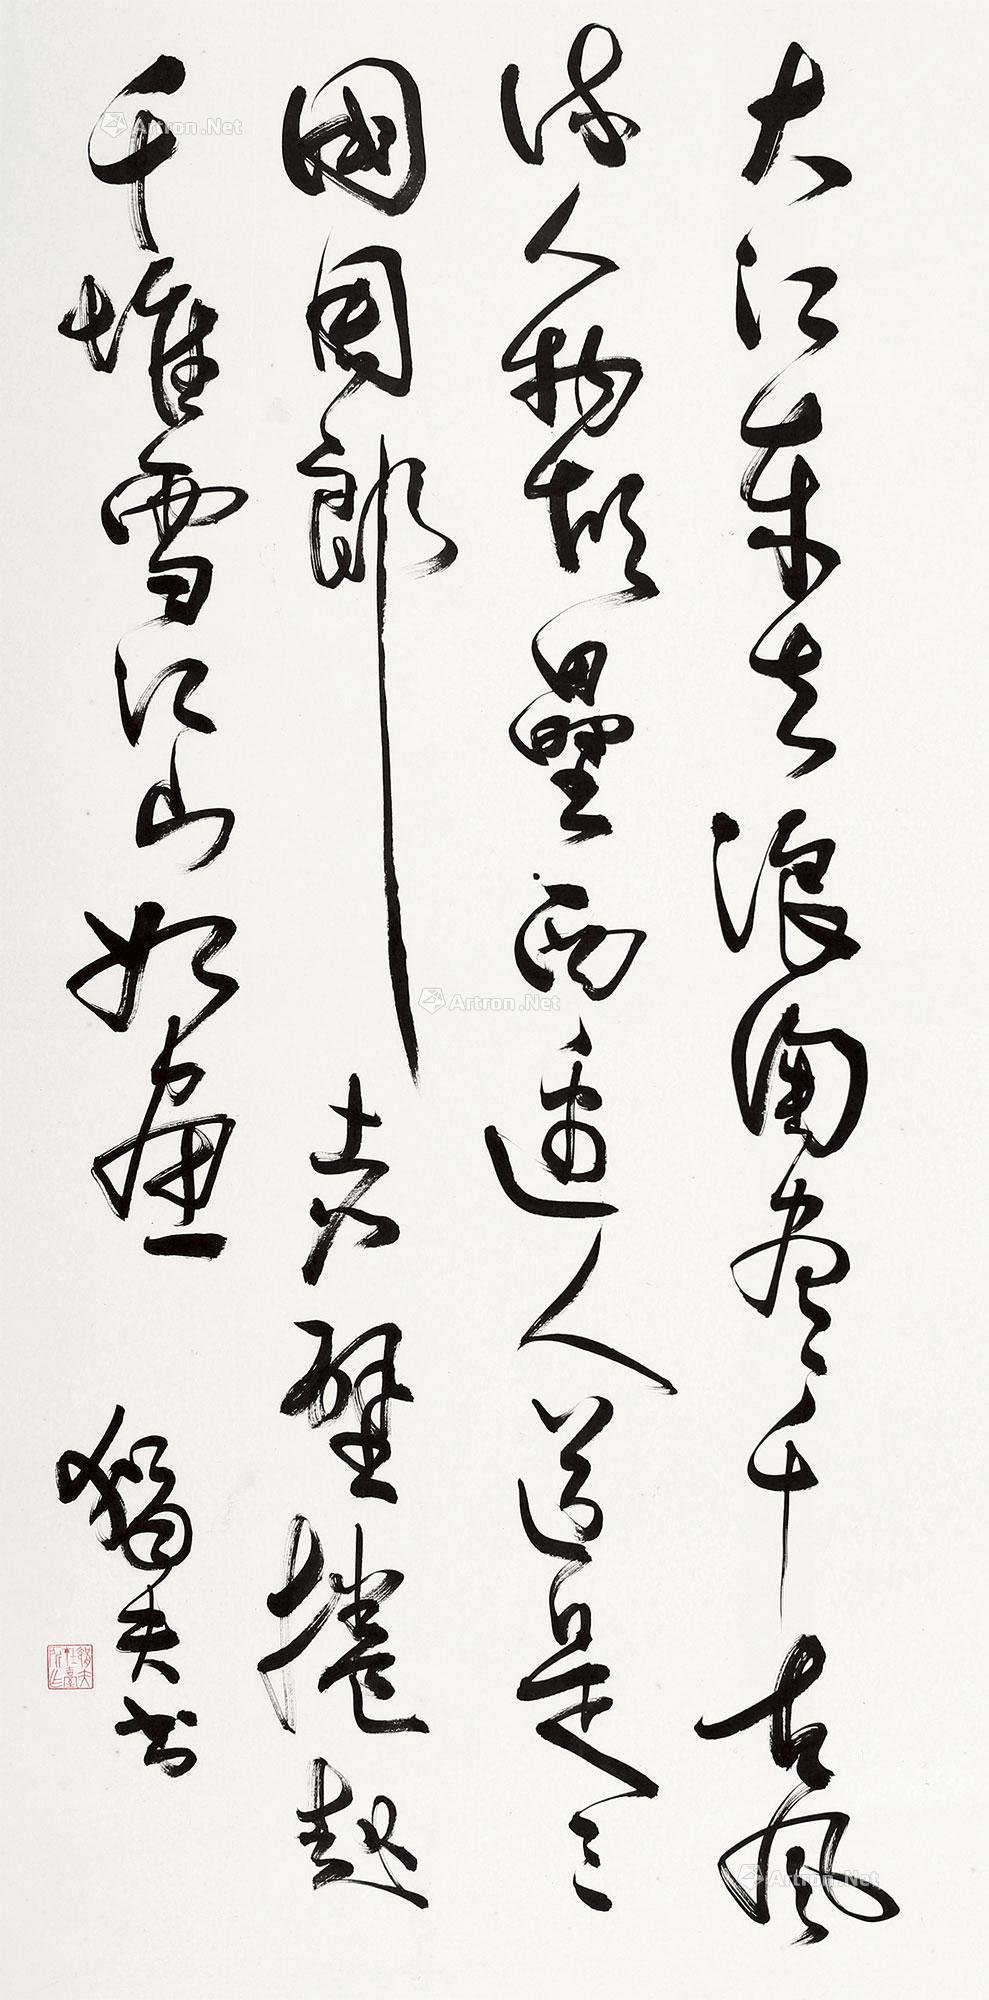 大江東去浪淘盡千古風
流人物故壘西邊人道是三
國周郎赤壁捲起
千堆雪江山如畫
夫書
Artron.Net
Artron.Net
Artron.Net